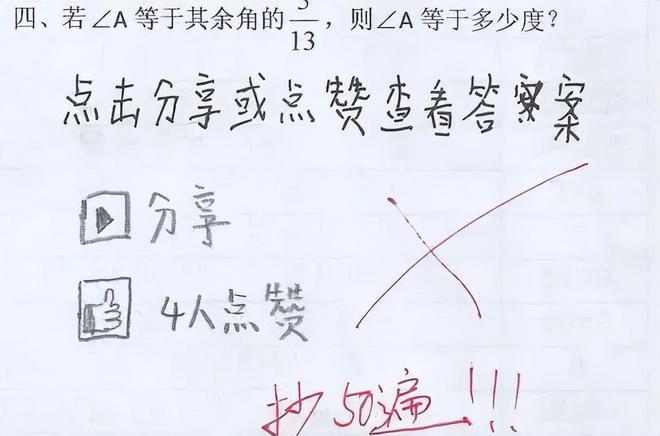 四、若∠A等于其余角的5/13，则∠A等于多少度？
点击分享或点赞查看答案
分享
4人点赞
抄50遍!!!